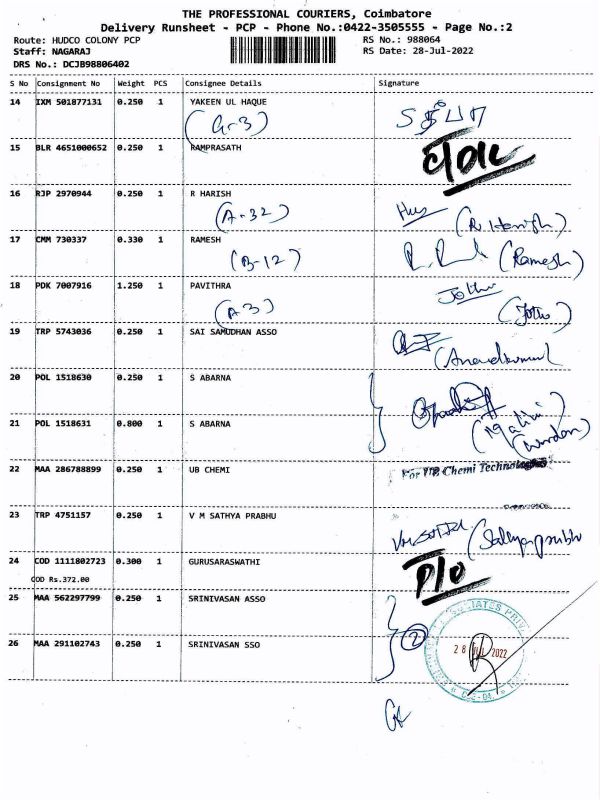 THE PROFESSIONAL COURIERS, Coimbatore
Delivery Runsheet - PCP - Phone No.:0422-3505555 - Page No.:2
Route: HUDCO COLONY PCP RS No.: 988064
Staff: NAGARAJ RS Date: 28-Jul-2022
DRS No.: DCJB98806402
S No Consignment No Weight PCS Consignee Details Signature
14 IXM 501877131 0.250 1 YAKEEN UL HAQUE
(G-3)
15 BLR 4651000652 0.250 1 RAMPRASATH
16 RJP 2970944 0.250 1 R HARISH
(A-32) (R Harish)
17 CMM 730337 0.330 1 RAMESH
(B-12) (Ramesh)
18 PDK 7007916 1.250 1 PAVITHRA
(A3)
19 TRP 5743036 0.250 1 SAI SAMUDHAN ASSO
20 POL 1518630 0.250 1 S ABARNA
21 POL 1518631 0.800 1 S ABARNA
(Warden)
22 MAA 286788899 0.250 1 UB CHEMI For UB Chemi Technologies
23 TRP 4751157 0.250 1 V M SATHYA PRABHU
(Sathyaprabhu
24 COD 1111802723 0.300 1 GURUSARASWATHI
COD Rs.372.00 P/O
25 MAA 562297799 0.250 1 SRINIVASAN ASSO
2
26 MAA 291102743 0.250 1 SRINIVASAN SSO
28 JUL 2022